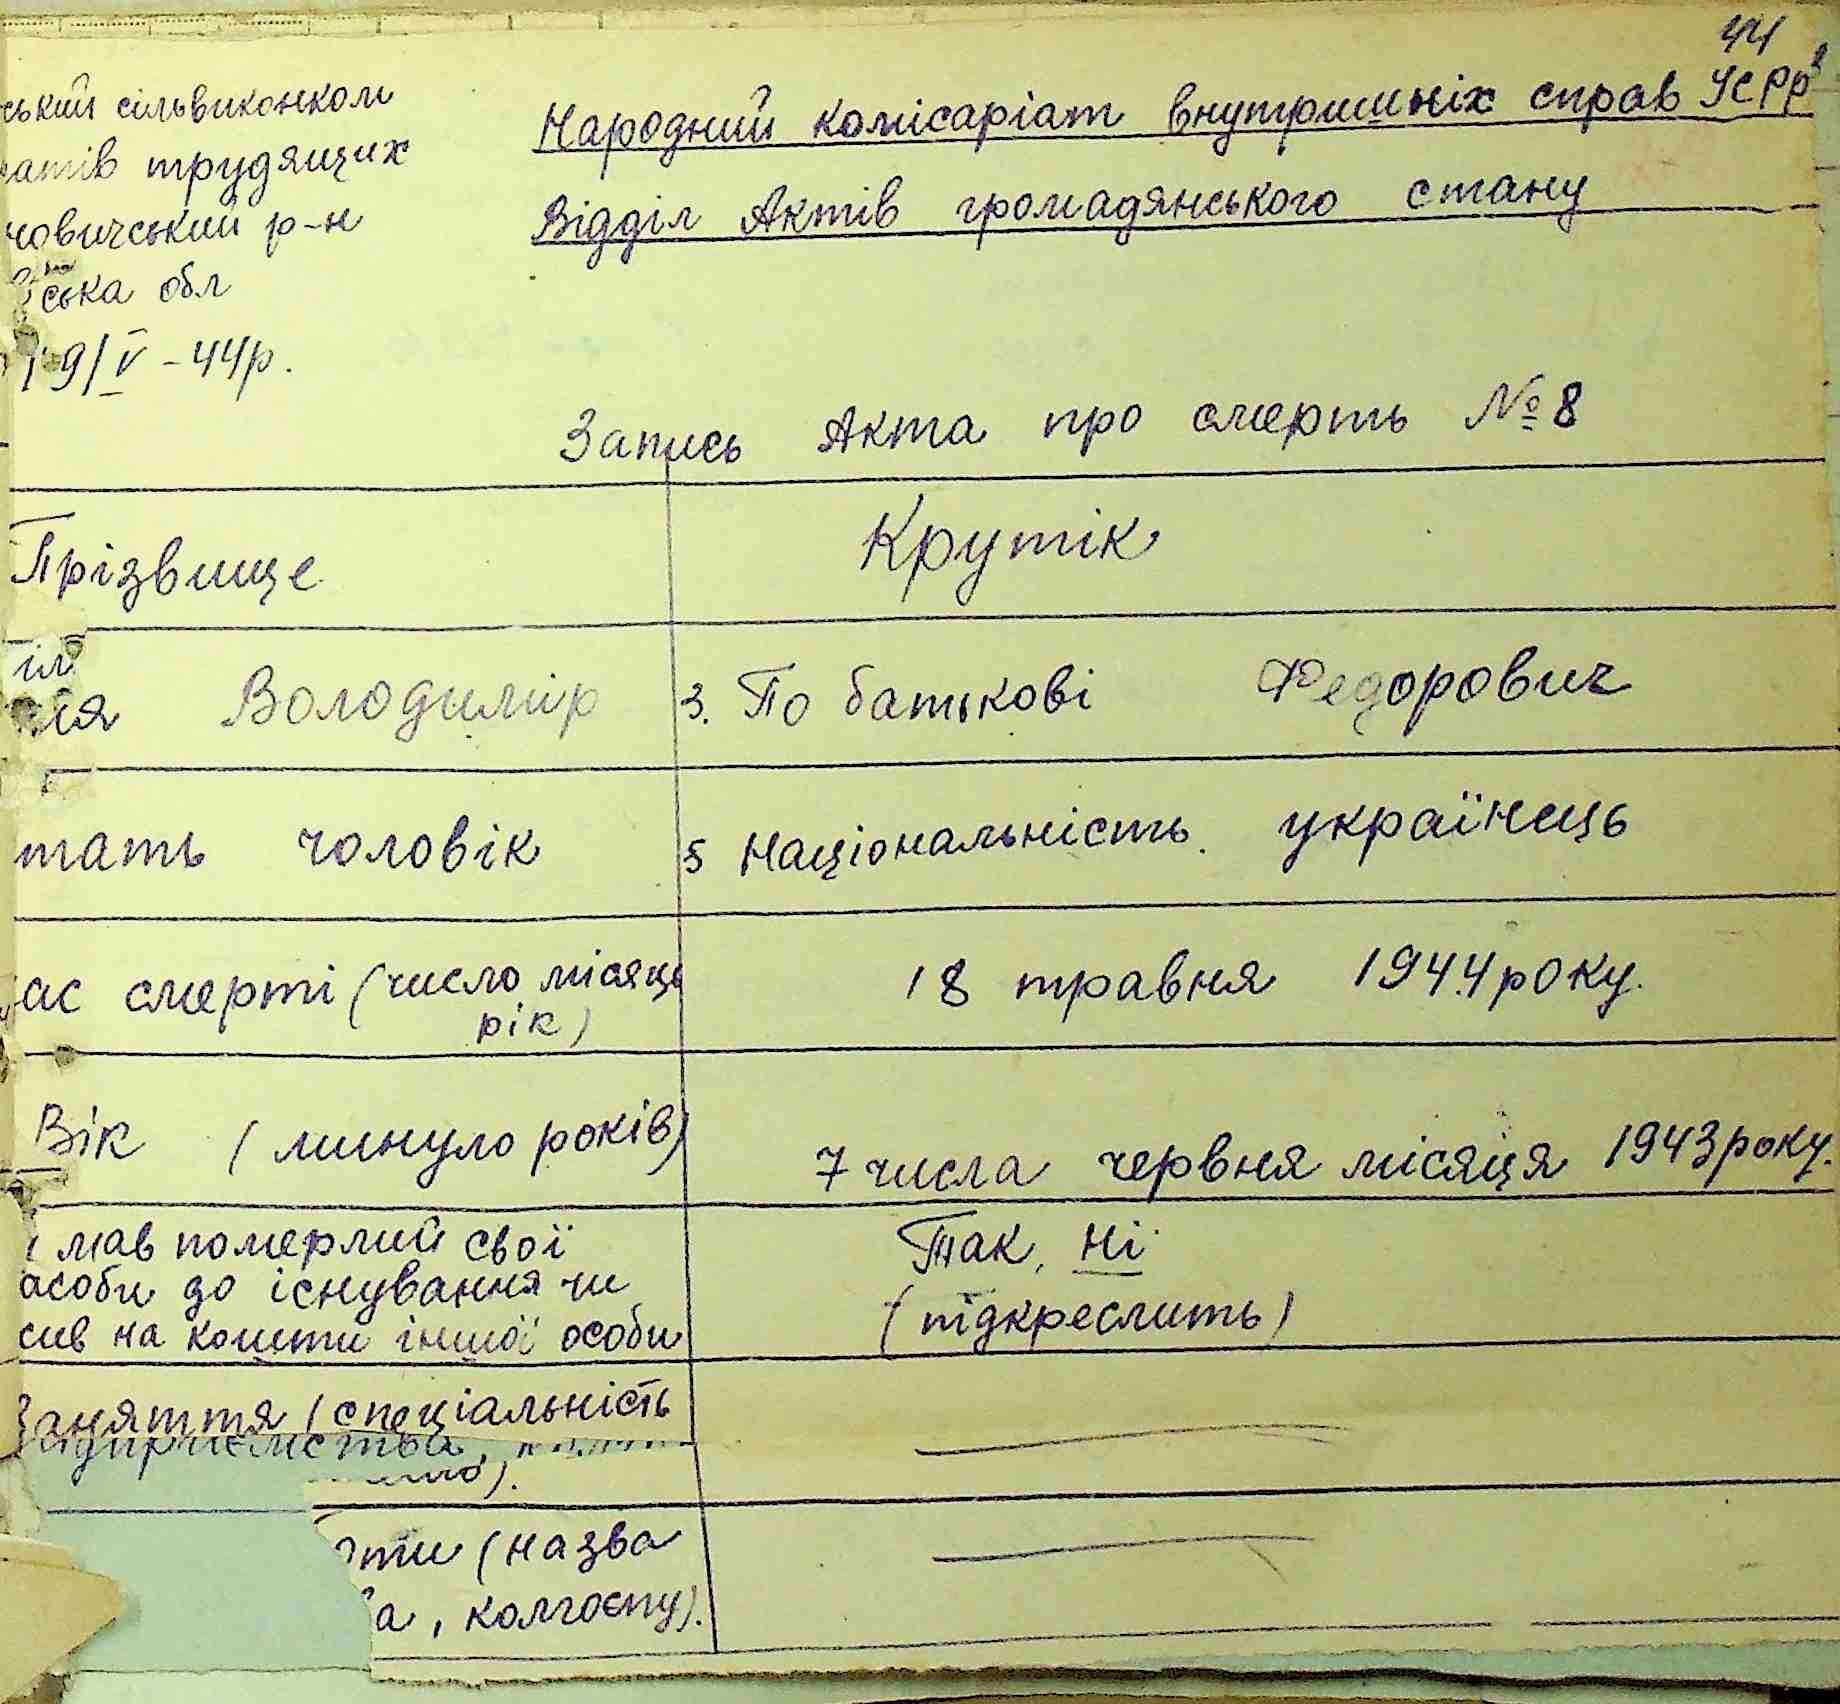 44
ський сільвиконком
атів трудящих
човичський р-н
ська обл
9/V - 44р.
Народний комісаріат внутришніх справ УСРР
Відділ Актів громадянського стану
Запись Акта про смерть № 8
Прізвище Крутік
ім
мя Володимір 3. По батькові Федорович
тать чоловік 5 Національність. українець
ас смерті (число місяць 18 травня 1944 року.
рік)
Вік (минуло років) 7 числа червня місяця 1943 року.
мав померлий свої Так, Ні
асоби до існування чи
(підкреслить)
сив на кошти іншої особи
Заняття (спеціальність
підприємства,
оти (назва
а, колгоспу).